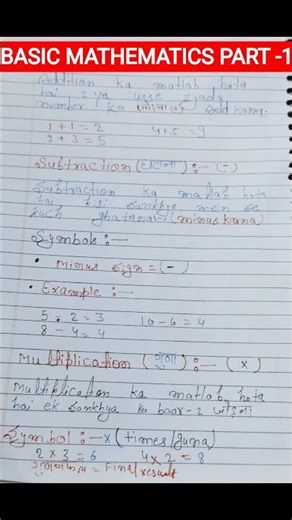 BASIC MATHEMATICS PART -1
Addition ka matlab hota
hai 2 ya usse zyada
number ko (जोड़ना) add karna.
1 + 1 = 2
4+5 = 9
2 + 3 = 5
Subtraction (घटाना) :— (-)
Subtraction ka matlab hota
hai, kisi sankhya mein se
kuch ghatana (minus karna)
Symbol :—
• Minus sign = (-)
• Example :—
5 - 2 = 3
10 - 6 = 4
8 - 4 = 4
Multiplication (गुणा) :— (x)
Multiplication ka matlab hota
hai ek sankhya ko baar-2 जोड़ना
Symbol :— x (times/guna)
2 x 3 = 6
4 x 2 = 8
गुणनफल = Final result